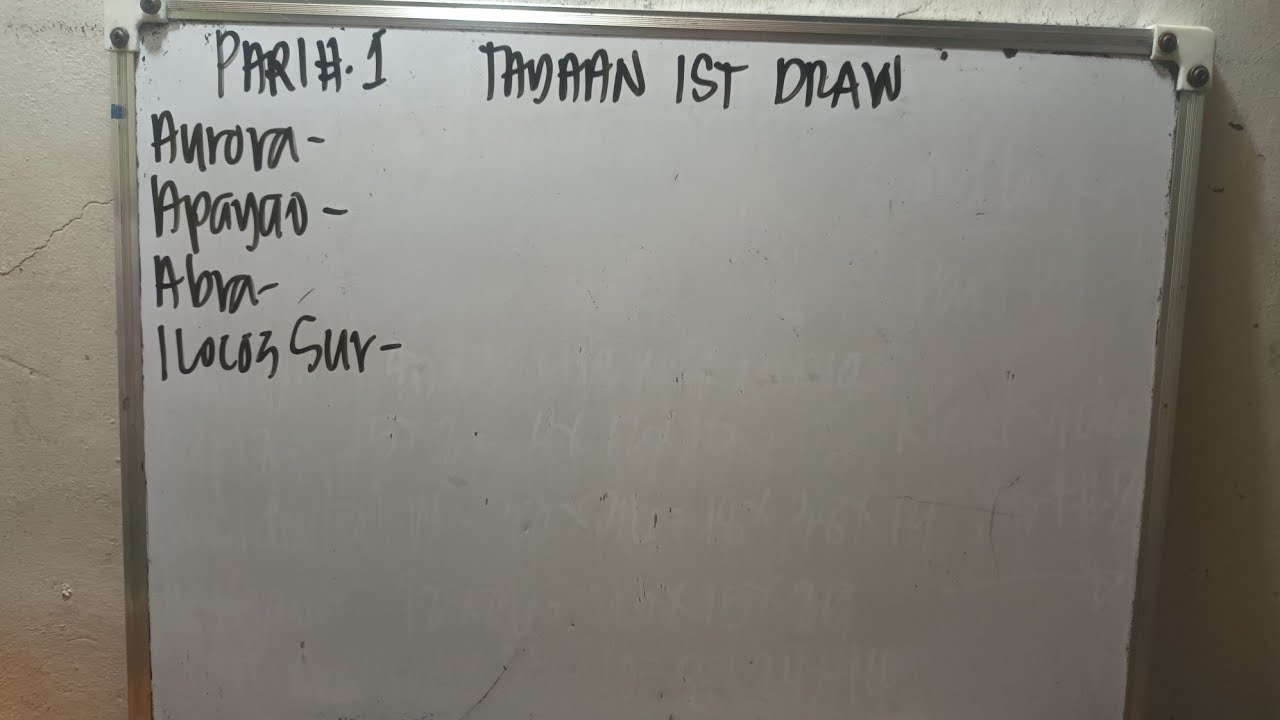 PARIH. 1 TAYAAN 1ST DRAW
Aurora-
Apayao-
Abra-
Ilocos Sur-